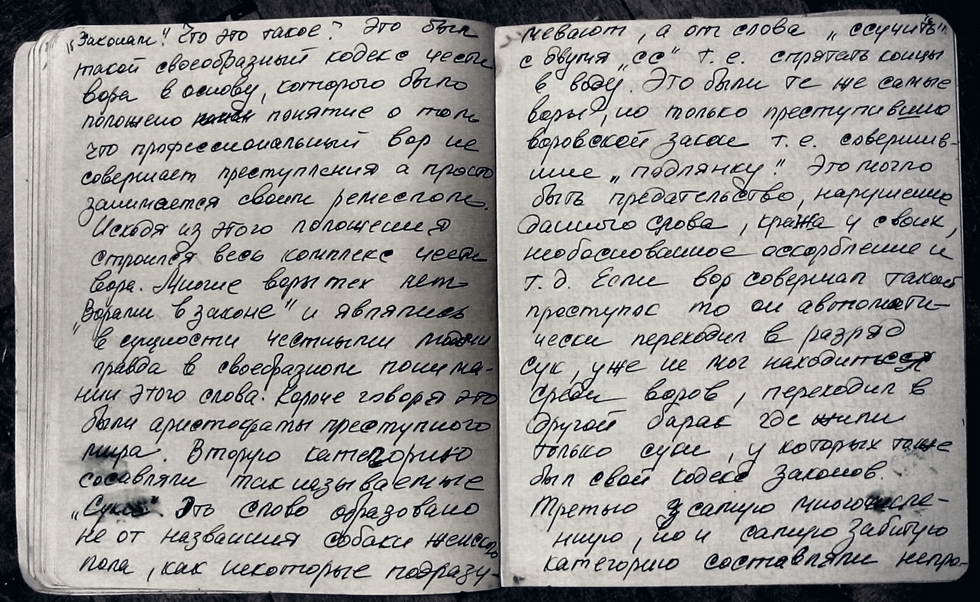 „Законами“? Что это такое? Это был
такой своеобразный кодекс чести
вора в основу, которого было
положено понятие о том
что профессиональный вор не
совершает преступления а просто
занимается своим ремеслом.
Исходя из этого положения
строился весь комплекс чести
вора. Многие воры тех лет
"Ворами в законе" и являлись
в сущности честными людьми
правда в своеобразном понима-
нии этого слова. Короче говоря это
были аристофраты преступного
мира. Вторую категорию
сосавляли так называемые
„Суки“. Это слово образовано
не от названия собаки женского
пола, как некоторые подразу-
мевают, а от слова „ссучить“
с двумя „сс“ т.е. спрятать концы
в воду. Это были те же самые
воры, но только преступившие
воровской закон т.е. совершив-
шие „подлянку“. Это могло
быть предательство, нарушение
данного слова, кража у своих,
необоснованное оскорбление и
т.д. Если вор совершал такой
проступок то он автомати-
чески переходил в разряд
сук, уже не мог находиться
среди воров, переходил в
другой барак где жили
только суки, у которых тоже
был свой кодекс законов.
Третью самую многочисле-
нную, но и самую забитую
категорию составляли непро-